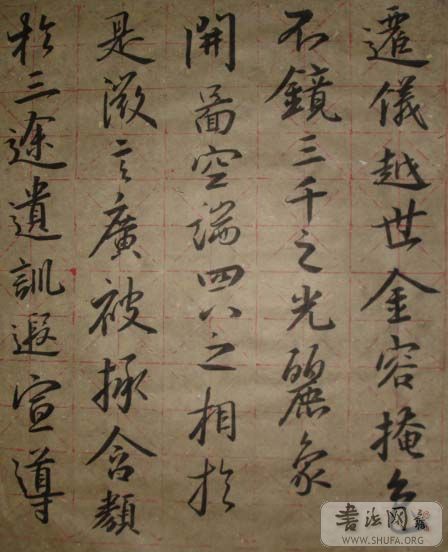 遷儀越世金容掩色
不鏡三千之光麗象
開啚空端四八之相扵
是微言廣被拯含類
扵三途遺訓遐宣導
書法网
WWW.SHUFA.ORG